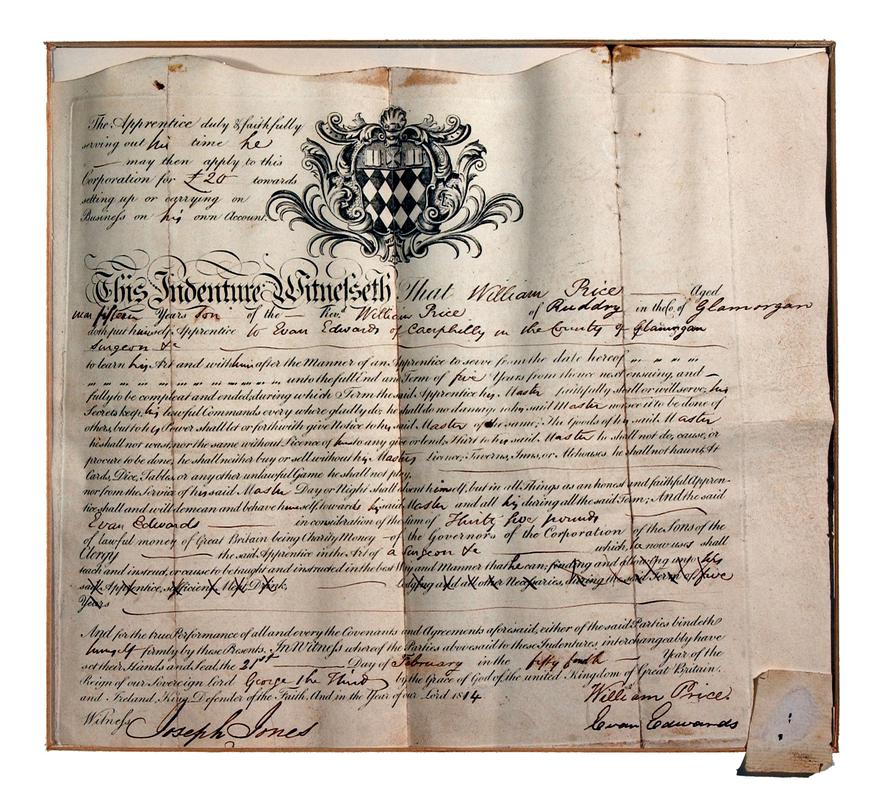 The Apprentice duly & faithfully
serving out his time he
may then apply to this
Corporation for £20 towards
setting up or carrying on
Business on his own Account.
This Indenture Witnesseth That William Price Aged
near fifteen Years Son of the Revd. William Price of Ruddry in the Co. of Glamorgan
doth put himself Apprentice to Evan Edwards of Caerphilly in the County of Glamorgan
Surgeon &c
to learn his Art and with him after the Manner of an Apprentice to serve from the date hereof
unto the full End and Term of five Years from thence next ensuing, and
fully to be compleat and ended, during which Term the said Apprentice his Master faithfully shall or will serve, his
Secrets keep, his lawful Commands every where gladly do; he shall do no damage to his said Master nor see it to be done of
others, but to his Power shall let or forthwith give Notice to his said Master of the same; The Goods of his said Master
he shall not wast, nor the same without Licence of him to any give or lend; Hurt to his said Master he shall not do, cause, or
procure to be done, he shall neither buy or sell without his Masters Licence; Taverns, Inns, or Alehouses he shall not haunt, At
Cards, Dice, Tables or any other unlawful Game he shall not play,
nor from the Service of his said Master Day or Night shall absent himself, but in all Things as an honest and faithful Appren-
tice shall and will demean and behave himself towards his said Master and all his during all the said Term; And the said
Evan Edwards in consideration of the Sum of Thirty five pounds
of lawful money of Great Britain being Charity Money of the Governors of the Corporation of the Sons of the
Clergy the said Apprentice in the Art of a Surgeon &c which he now uses shall
teach and instruct, or cause to be taught and instructed in the best Way and Manner that he can, finding and allowing unto his
said Apprentice, sufficient Meat, Drink, Lodging and all other Necessaries, during the said Term of five
Years
And for the true Performance of all and every the Covenants and Agreements aforesaid, either of the said Parties bindeth
himself firmly by these Presents. In Witness whereof the Parties abovesaid to these Indentures interchangeably have
set their Hands and Seals, the 21st Day of February in the fifty fourth Year of the
Reign of our Sovereign Lord George the Third by the Grace of God of the united Kingdom of Great Britain,
and Ireland, King, Defender of the Faith. And in the Year of our Lord 1814
William Price
Witness Joseph Jones Evan Edwards